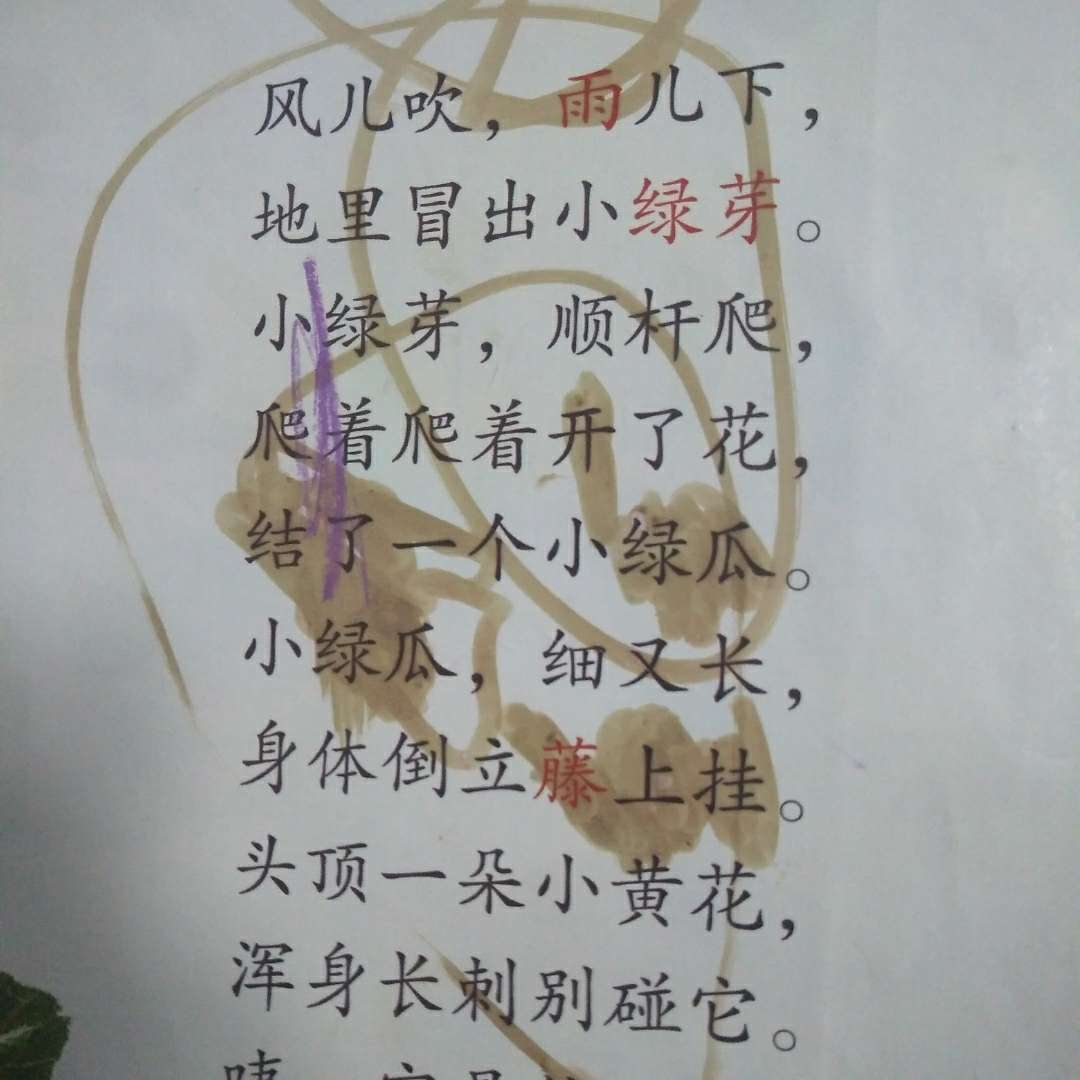 风儿吹，雨儿下，
地里冒出小绿芽。
小绿芽，顺杆爬，
爬着爬着开了花，
结了一个小绿瓜。
小绿瓜，细又长，
身体倒立藤上挂。
头顶一朵小黄花，
浑身长刺别碰它。